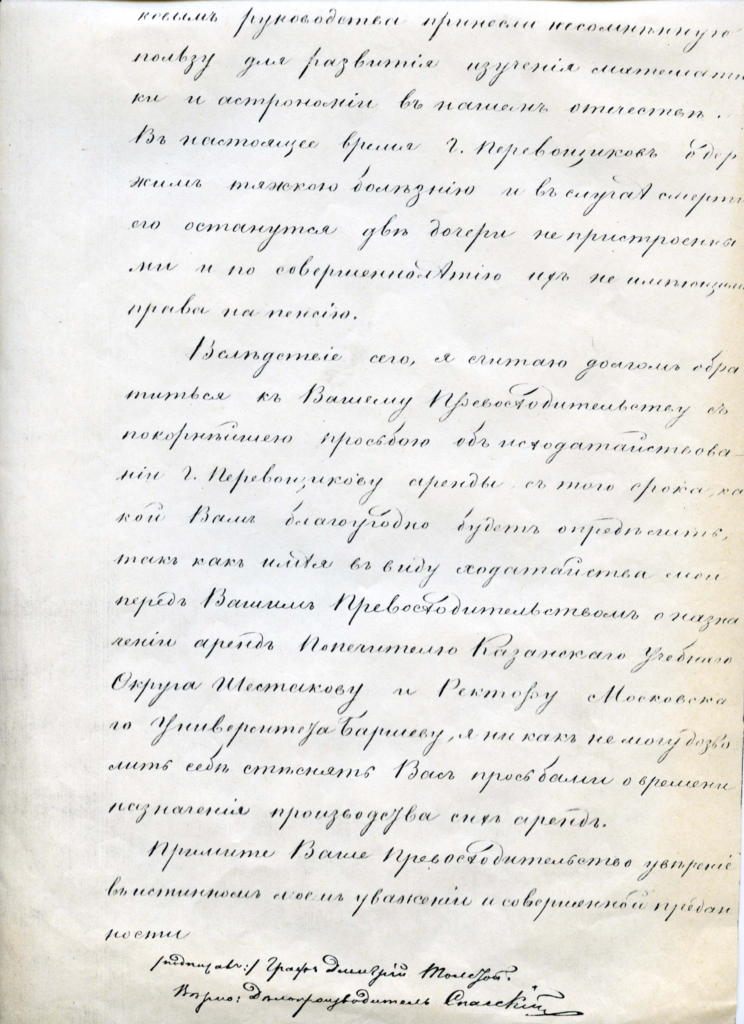 руководства принесли несомнѣнную
пользу для развитія изученія математи
ки и астрономіи въ нашемъ отечествѣ.
Въ настоящее время Г. Перевощиковъ одер
жимъ тяжкою болѣзнію и въ случаѣ смерти
его останутся двѣ дочери не пристроенны
ми и по совершеннолѣтію ихъ не имѣющими
права на пенсію.
Вслѣдствіе сего, я считаю долгомъ обра
титься къ Вашему Превосходительству съ
покорнѣйшею просьбою объ исходатайствова-
ніи Г. Перевощикову аренды съ того срока, ка
кой Вамъ благоугодно будетъ опредѣлить,
такъ какъ имѣя въ виду ходатайства мои
передъ Вашимъ Превосходительствомъ о назна
ченіи арендъ Попечителю Казанскаго Учебнаго
Округа Шестакову и Ректору Московска
го Университета Баршеву, я ни какъ не могу дозво
лить себѣ стѣснять Васъ просьбами о времени
назначенія производства сихъ арендъ.
Примите Ваше Превосходительство увѣреніе
въ истинномъ моемъ уваженіи и совершенной предан
ности
/подписалъ:/ Графъ Дмитрій Толстой.
Вѣрно: Дѣлопроизводитель Спасскій